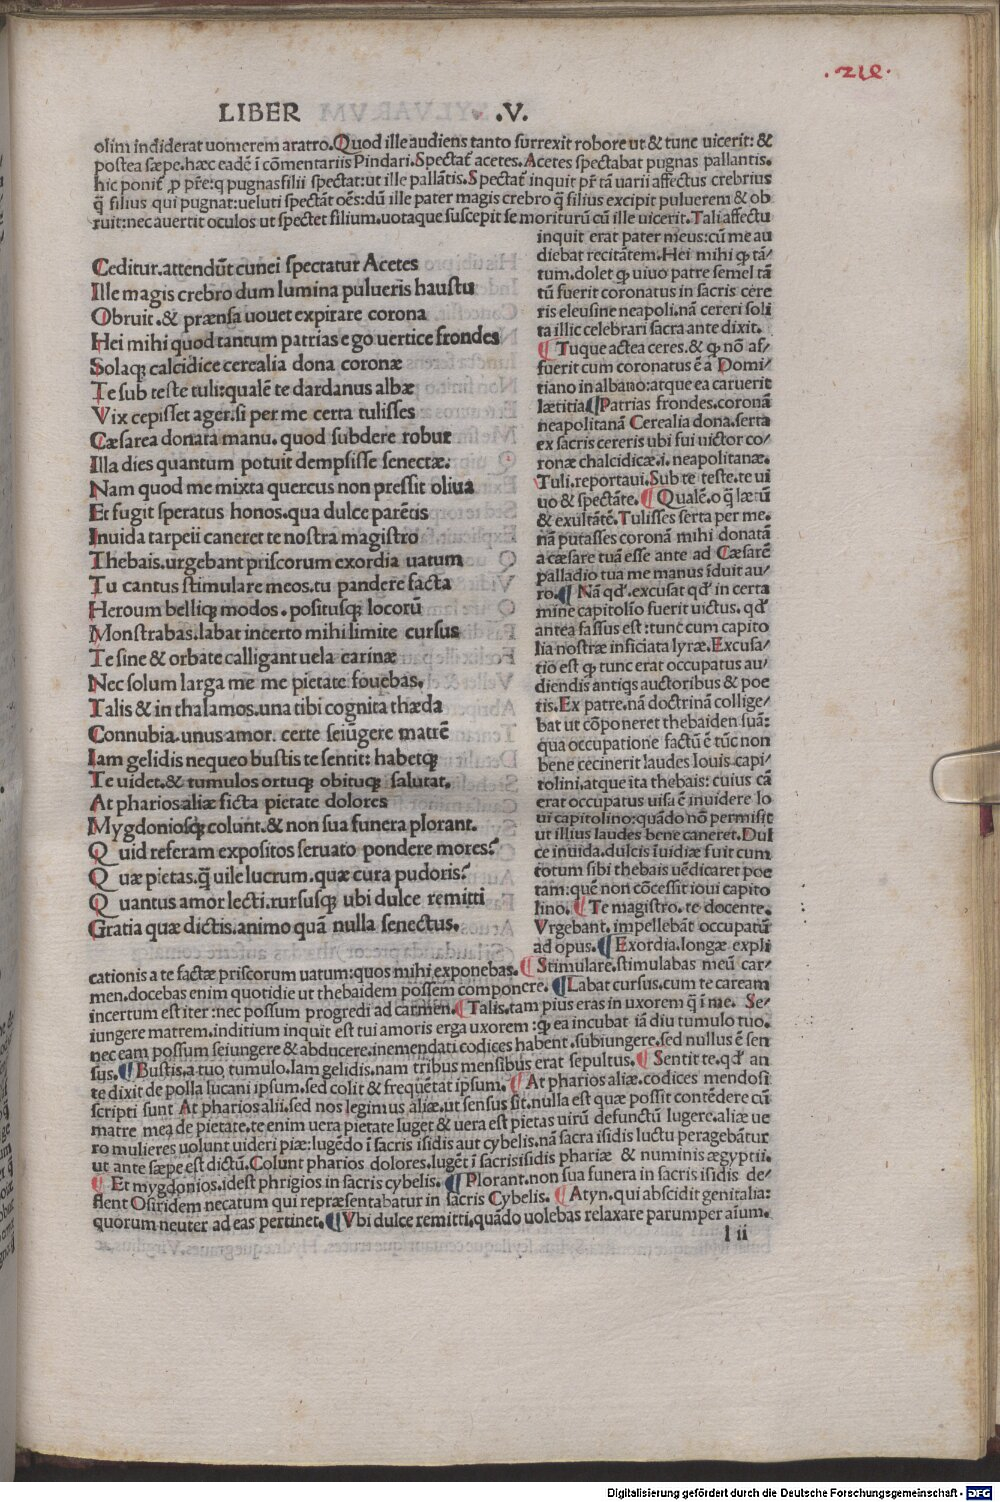 .216.
LIBER .V.
olim indiderat uomerem aratro.Quod ille audiens tanto surrexit robore ut & tunc uicerit: &
postea sæpe.hæc eadē ī cōmentariis Pindari.Spectat̃ acetes.Acetes spectabat pugnas pallantis.
hic ponit̃ ꝓ pr̃e:q pugnas filii spectat:ut ille pallātis.Spectat̃ inquit pr̃ tā uarii affectus crebrius
q̃ filius qui pugnat:ueluti spectāt oēs:dū ille pater magis crebro q̃ filius excipit puluerem & ob
ruit:nec auertit oculos ut spectet filium.uotaque suscepit se moriturū cū ille uicerit.Tali affectu
Ceditur.attendūt cunei spectatur Acetes
Ille magis crebro dum lumina pulueris haustu
Obruit.& prænsa uouet expirare corona
Hei mihi quod tantum patrias ego uertice frondes
Solaqȝ calcidice cerealia dona coronæ
Te sub teste tuli:qualē te dardanus albæ
Vix cepisset ager.si per me certa tulisses
Cæsarea donata manu. quod subdere robur
Illa dies quantum potuit dempsisse senectæ:
Nam quod me mixta quercus non pressit oliua
Et fugit speratus honos.qua dulce parētis
Inuida tarpeii caneret te nostra magistro
Thebais.urgebant priscorum exordia uatum
Tu cantus stimulare meos.tu pandere facta
Heroum belliqȝ modos.positusqȝ locorū
Monstrabas.labat incerto mihi limite cursus
Te sine & orbate calligant uela carinæ
Nec solum larga me me pietate fouebas.
Talis & in thalamos.una tibi cognita thæda
Connubia.unus amor. certe seiūgere matrē
Iam gelidis nequeo bustis te sentit: habetqȝ
Te uidet.& tumulos ortuqȝ obituqȝ salutat.
At pharios aliæ ficta pietate dolores
Mygdoniosqȝ colunt.& non sua funera plorant.
Quid referam expositos seruato pondere mores?
Quæ pietas.q̃ uile lucrum.quæ cura pudoris?
Quantus amor lecti.rursusqȝ ubi dulce remitti
Gratia quæ dictis.animo quā nulla senectus.
inquit erat pater meus:cū me au
diebat recitātem.Hei mihi qꝫ tā/
tum.dolet qꝫ uiuo patre semel tā
tū fuerit coronatus in sacris cere
ris eleusine neapoli.nā cereri soli
ta illic celebrari sacra ante dixit.
¶ Tuque actea ceres.& qꝫ nō af/
fuerit cum coronatus ē a Domi/
tiano in albano:atque ea caruerit
lætitia¶Patrias frondes.coronā
neapolitanā Cerealia dona.serta
ex sacris cereris ubi fui uictor co/
ronæ chalcidicæ.i.neapolitanæ.
Tuli.reportaui.Sub te teste.te ui
uo & spectāte.¶ Qualē.o q̃ lætū
& exultātē.Tulisses serta per me.
nā putasses coronā mihi donatā
a cæsare tuā esse ante ad Cæsarē
palladio tua me manus īduit au/
ro.¶ Nā qd̃.excusat qd̃ in certa
mine capitolio fuerit uictus. qd̃
antea fassus est:tunc cum capito
lia nostræ inficiata lyræ.Excusa/
tio est qꝫ tunc erat occupatus au/
diendis antiqs auctoribus & poe
tis.Ex patre.nā doctrinā collige/
bat ut cōponeret thebaiden suā:
qua occupatione factū ē tūc non
bene cecinerit laudes Iouis capi/
tolini.atque ita thebais: cuius cā
erat occupatus uisa ē inuidere Io
ui capitolino:quādo nō permisit
ut illius laudes bene caneret.Dul
ce inuida.dulcis īuidiæ fuit cum
totum sibi thebais uēdicaret poe
tam:quē non cōcessit ioui capito
lino.¶ Te magistro.te docente.
Vrgebant.impellebāt occupatū
ad opus.¶ Exordia.longæ expli
cationis a te factæ priscorum uatum:quos mihi exponebas.¶ Stimulare.stimulabas meū car/
men.docebas enim quotidie ut thebaidem possem componere.¶Labat cursus.cum te caream
incertum est iter:nec possum progredi ad carmen.¶Talis.tam pius eras in uxorem q̃ ī me. Se/
iungere matrem.inditium inquit est tui amoris erga uxorem:qꝫ ea incubat iā diu tumulo tuo.
nec eam possum seiungere & abducere.inemendati codices habent.subiungere.sed nullus ē sen
sus.¶Bustis.a tuo tumulo.Iam gelidis.nam tribus mensibus erat sepultus.¶ Sentit te.qd̃ an
te dixit de polla lucani ipsum.sed colit & frequētat ipsum.¶ At pharios aliæ.codices mendosi
scripti sunt At pharios alii.sed nos legimus aliæ.ut sensus sit.nulla est quæ possit contēdere cū
matre mea de pietate.te enim uera pietate luget & uera est pietas uirū defunctū lugere.aliæ ue
ro mulieres uolunt uideri piæ:lugēdo ī sacris isidis aut cybelis.nā sacra isidis luctu peragebātur
ut ante sæpe est dictū.Colunt pharios dolores.lugēt ī sacris isidis phariæ & numinis ægyptii.
¶ Et mygdonios.idest phrigios in sacris cybelis.¶Plorant.non sua funera in sacris isidis de/
flent Osiridem necatum qui repræsentabatur in sacris Cybelis. ¶Atyn.qui abscidit genitalia:
quorum neuter ad eas pertinet.¶Vbi dulce remitti.quādo uolebas relaxare parumper aīum.
l ii
Digitalisierung gefördert durch die Deutsche Forschungsgemeinschaft - DFG